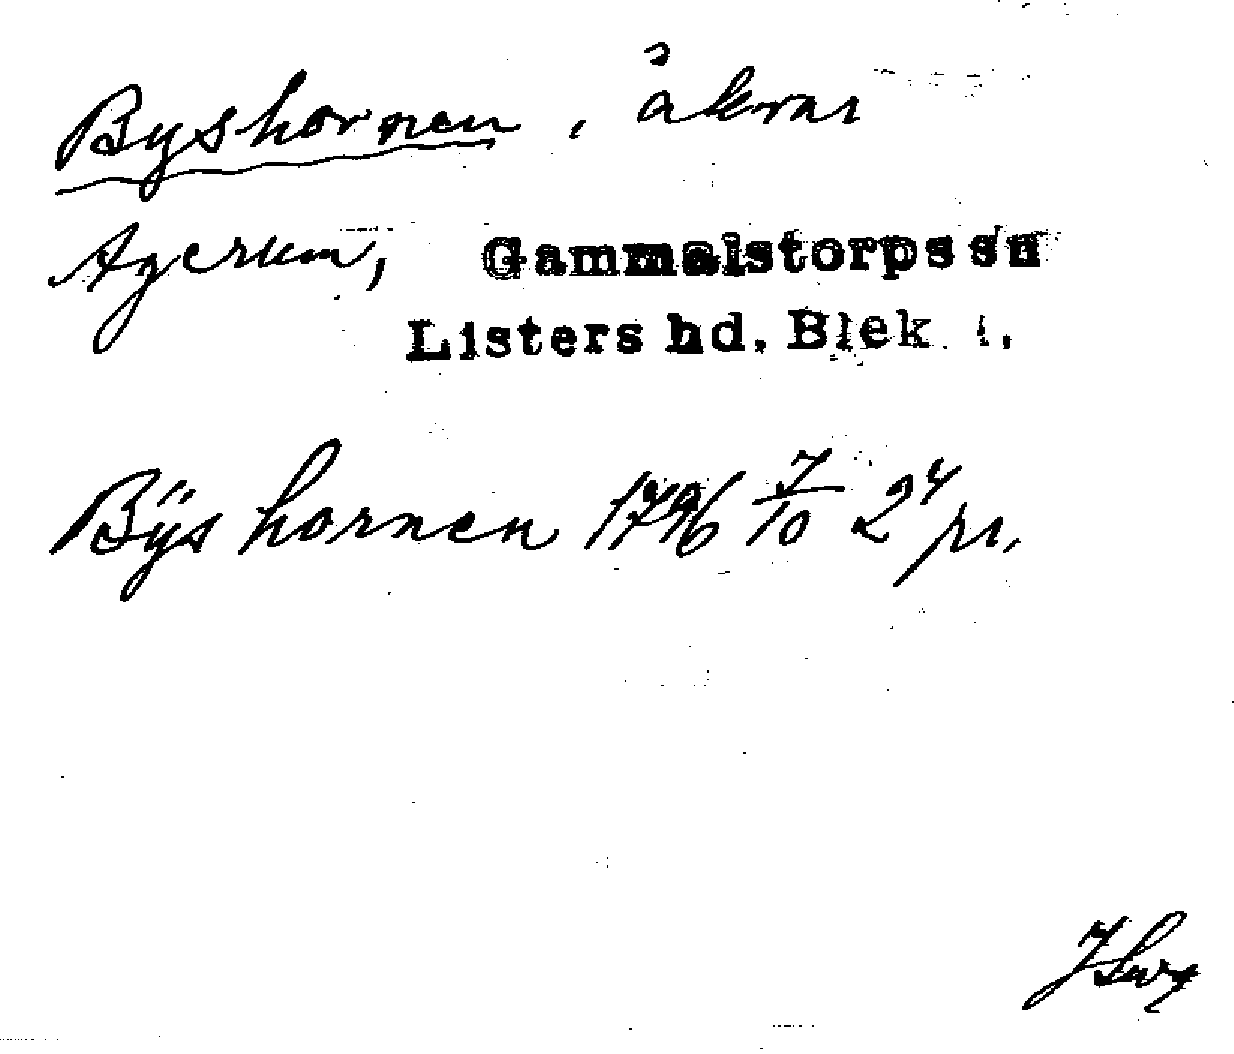 Byshornen, åkrar
Agerum, Gammalstorps sn
Listers hd. Blek. l.
Bÿs hornen 1796 7/10 24 pr.